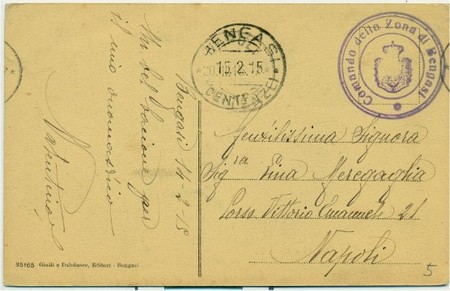 Bengasi 14-2-15
Un bel bacione per
il mio onomastico
Valentino
BENGASI
15.2.15
(CENTRO)
Comando della Zona di Bengasi
Gentilissima Signora
Sig.ra Pina Meregaglia
Corso Vittorio Emanuele 21
Napoli
5
35165 Giuili e Dabdasce, Editori - Bengasi